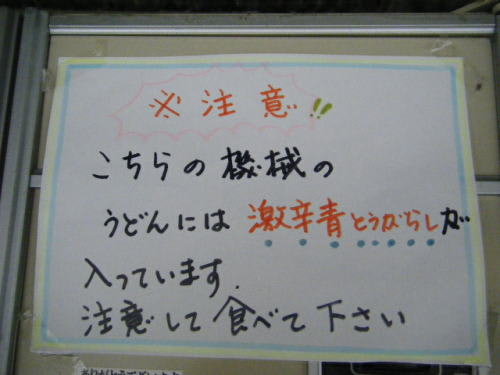 ※注意!!
こちらの機械の
うどんには激辛青とうがらしが
入っています.
注意して食べて下さい